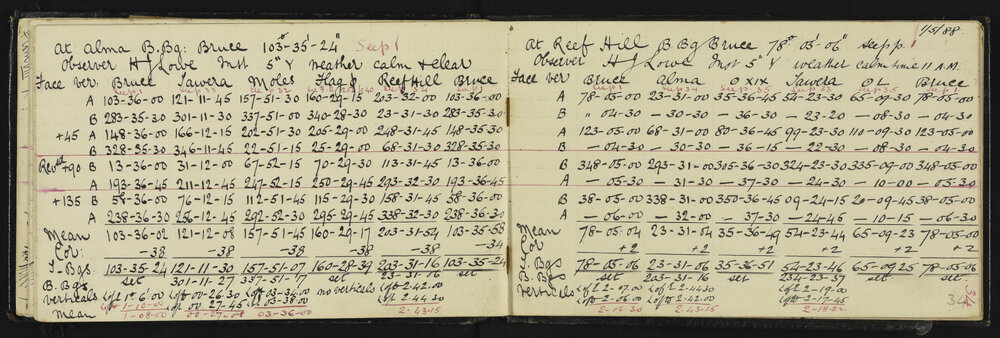 At Alma B.Bg: Bruce 103°-35'-24" See p 1
Observer H J Lowe Inst 5" Y weather calm & clear
Face ver: Bruce Tawera Moles Flag 8 Reef Hill Bruce
A 103-36-00 121-11-45 157-51-30 160-29-15 203-32-00 103-36-00
B 283-35-30 301-11-30 337-51-00 340-28-30 23-31-30 283-35-30
+45 A 148-36-00 166-12-15 202-51-30 205-29-00 248-31-45 148-35-30
B 328-35-30 346-11-45 22-51-15 25-29-00 68-31-30 328-35-30
Revd +90 B 13-36-00 31-12-00 67-52-15 70-29-30 113-31-45 13-36-00
A 193-36-45 211-12-45 247-52-15 250-29-45 293-32-30 193-36-45
+135 B 58-36-00 76-12-15 112-51-45 115-29-30 158-31-45 58-36-00
A 238-36-30 256-12-45 292-52-30 295-29-45 338-32-30 238-36-30
Mean 103-36-02 121-12-08 157-51-45 160-29-17 203-31-54 103-35-58
Cor: -38 -38 -38 -38 -38 -34
T. Bgs. 103-35-24 121-11-30 157-51-07 160-28-34 203-31-16 103-35-24
B. Bgs. set 301-11-27 337-51-17 23-31-06 set
Verticals no verticals
Mean 1-08-00 00-27-08 03-36-00 2-43-15
1/5/88.
At Reef Hill B.Bg Bruce 78°-05'-06" See p p. 1
Observer H J Lowe Inst 5" Y weather calm time 11 A.M.
Face ver Bruce Alma O XIX Tawera O L Bruce
A 78-05-00 23-31-00 35-36-45 54-23-30 65-09-30 78-05-00
B " 04-30 -30-30 -36-30 -23-20 -08-30 -04-30
A 123-05-00 68-31-00 80-36-45 99-23-30 110-09-30 123-05-00
B -04-30 -30-30 -36-15 -22-30 -08-30 -04-30
B 348-05-00 293-31-00 305-36-30 324-23-30 335-09-00 348-05-00
A -05-30 -31-30 -37-30 -24-30 -10-00 -05-30
B 38-05-00 338-31-00 350-36-45 09-24-15 20-09-45 38-05-00
A -06-00 -32-00 -37-30 -24-45 -10-15 -06-30
Mean 78-05-04 23-31-04 35-36-49 54-23-44 65-09-23 78-05-00
Cor +2 +2 +2 +2 +2 +2
T Bgs 78-05-06 23-31-06 35-36-51 54-23-46 65-09-25 78-05-06
B Bgs set 203-31-16 set 234-23-37 set set
Verticals Lft 2-07-00 Lft 2-44-30 Lft 2-19-00
Lft 2-06-00 Lft 2-42-00 Lft 2-17-45
2-06-30 2-43-15 2-18-22
34